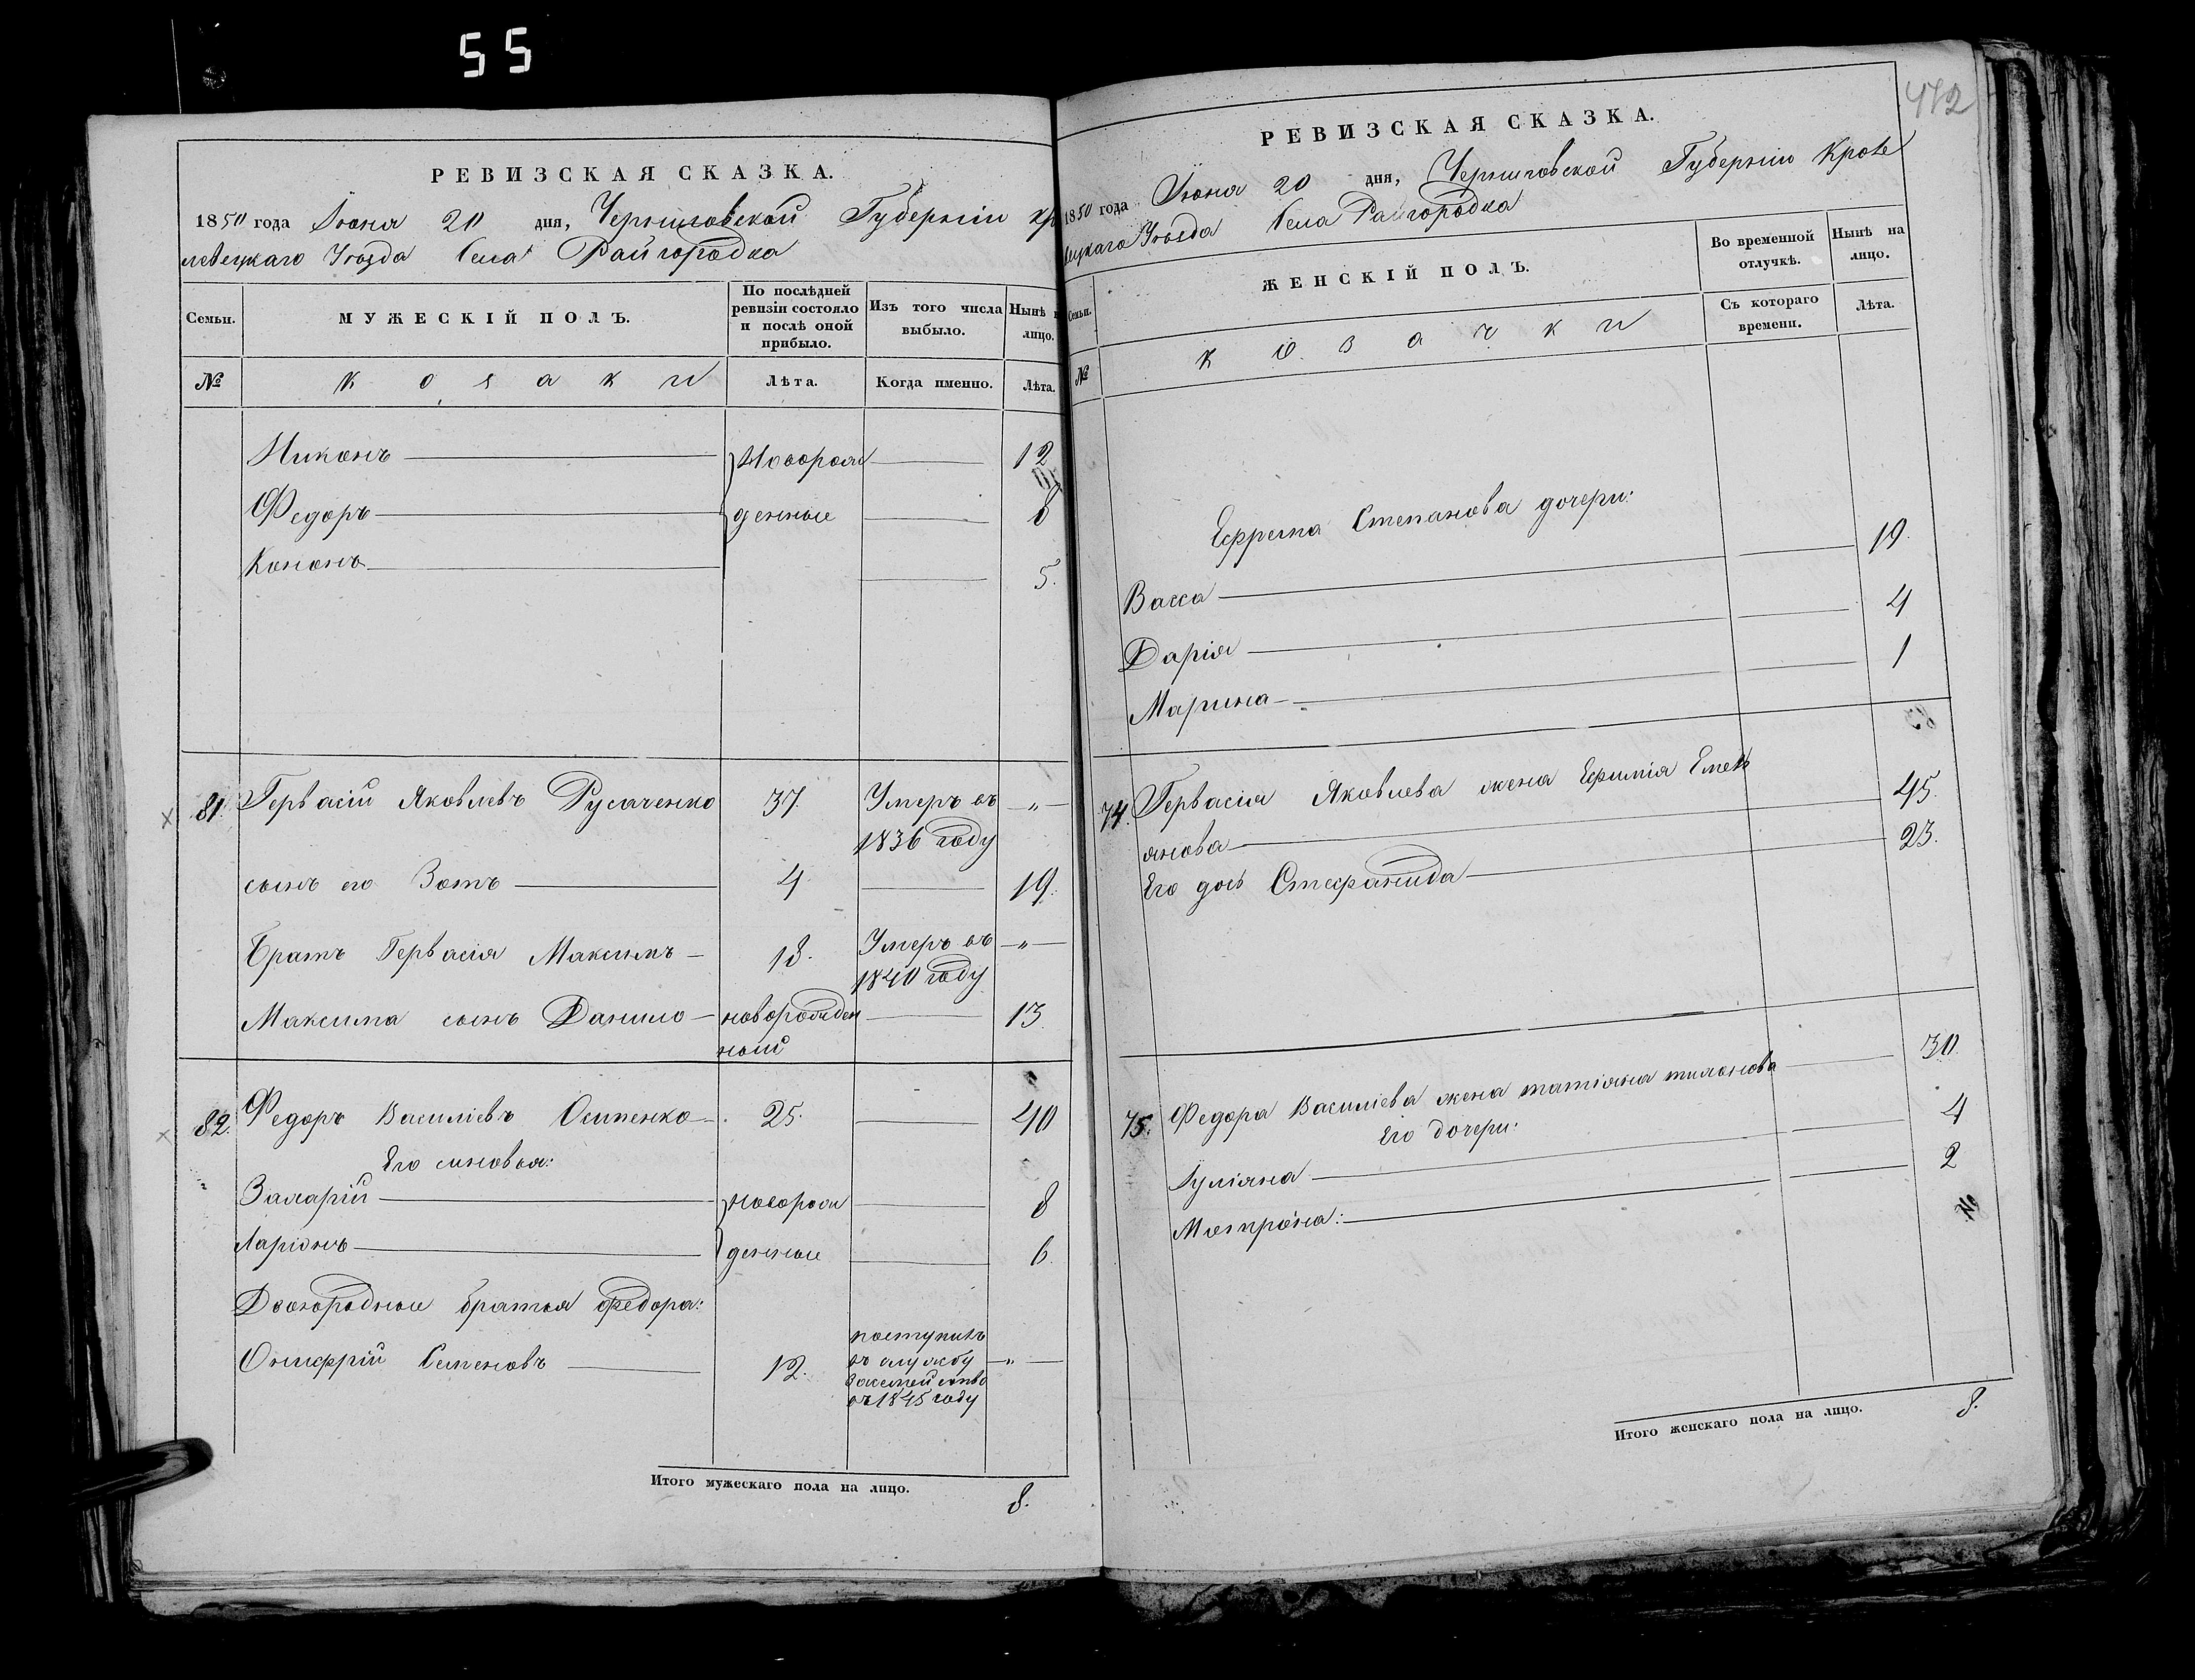 55
РЕВИЗСКАЯ СКАЗКА.
1850 года Іюня 20 дня, Черниговской Губерніи Кро
левецкаго Уѣзда Села Райгородка
Семьи. МУЖЕСКІЙ ПОЛЪ. По послѣдней ревизіи состояло и послѣ оной прибыло. Изъ того числа выбыло. Нынѣ на лицо.
№ Козаки Лѣта. Когда именно. Лѣта.
Никонъ Новорож 12
Федоръ денные 8
Кононъ 5.
81. Гервасій Яковлевъ Русаченко 37. Умеръ въ „
1836 году
сынъ его Зотъ 4 19.
Братъ Гервасія Максимъ 18. Умеръ въ „
1840 году
Максима сынъ Данило новорожден 13
ный
82. Федоръ Василіевъ Осипенко 25. 40
Его сыновья:
Захарій Новорож 8
Ларіонъ денные 6.
Двоюродные братья Федора:
Онисифрій Семеновъ 12. поступилъ „
въ службу
въ 1845 году
Итого мужескаго пола на лицо. 8.
442
РЕВИЗСКАЯ СКАЗКА.
1850 года Іюня 20 дня, Черниговской Губерніи Кроле
вецкаго Уѣзда Села Райгородка
Семьи. ЖЕНСКІЙ ПОЛЪ. Во временной отлучкѣ. Нынѣ на лицо.
№ Козачки Съ котораго времени. Лѣта.
Ефрема Степанова дочери:
Васса 19.
Дарія 4
Марина 1
74. Гервасія Яковлева жена Ефимія Емель
янова 45.
Его дочь Стефанида 23.
75. Федора Василіева жена Татіяна Тимонова 30.
Его дочери:
Іуліяна 4
Мотрона: 2
Итого женскаго пола на лицо. 8.